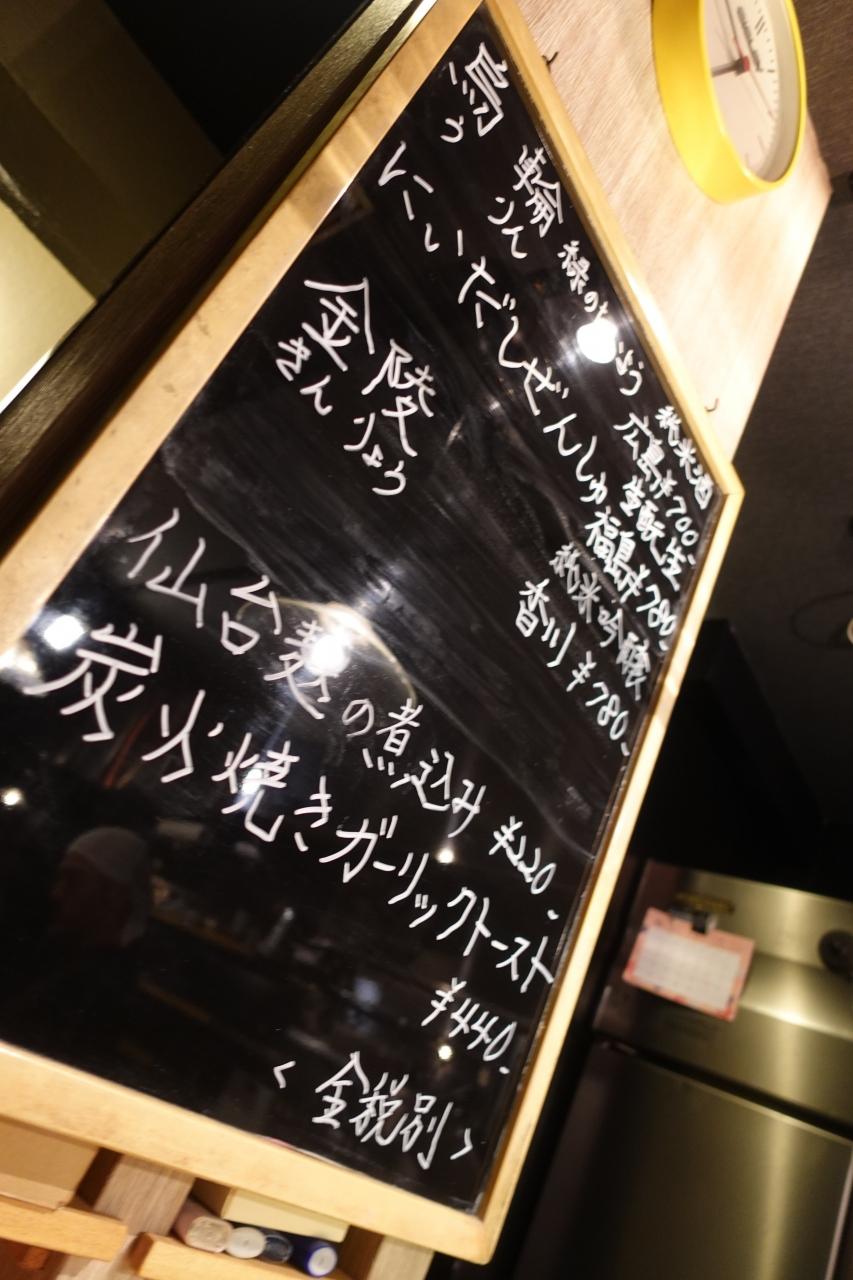 烏輪 緑の 純米酒
うりん 広島 ¥700-
生酛 生
にいだしぜんしゅ 福島 ¥780-
純米吟醸
金陵 香川 ¥780-
きんりょう
仙台麩の煮込み ¥220.-
炭火焼きガーリックトースト
¥440.-
<全税別>